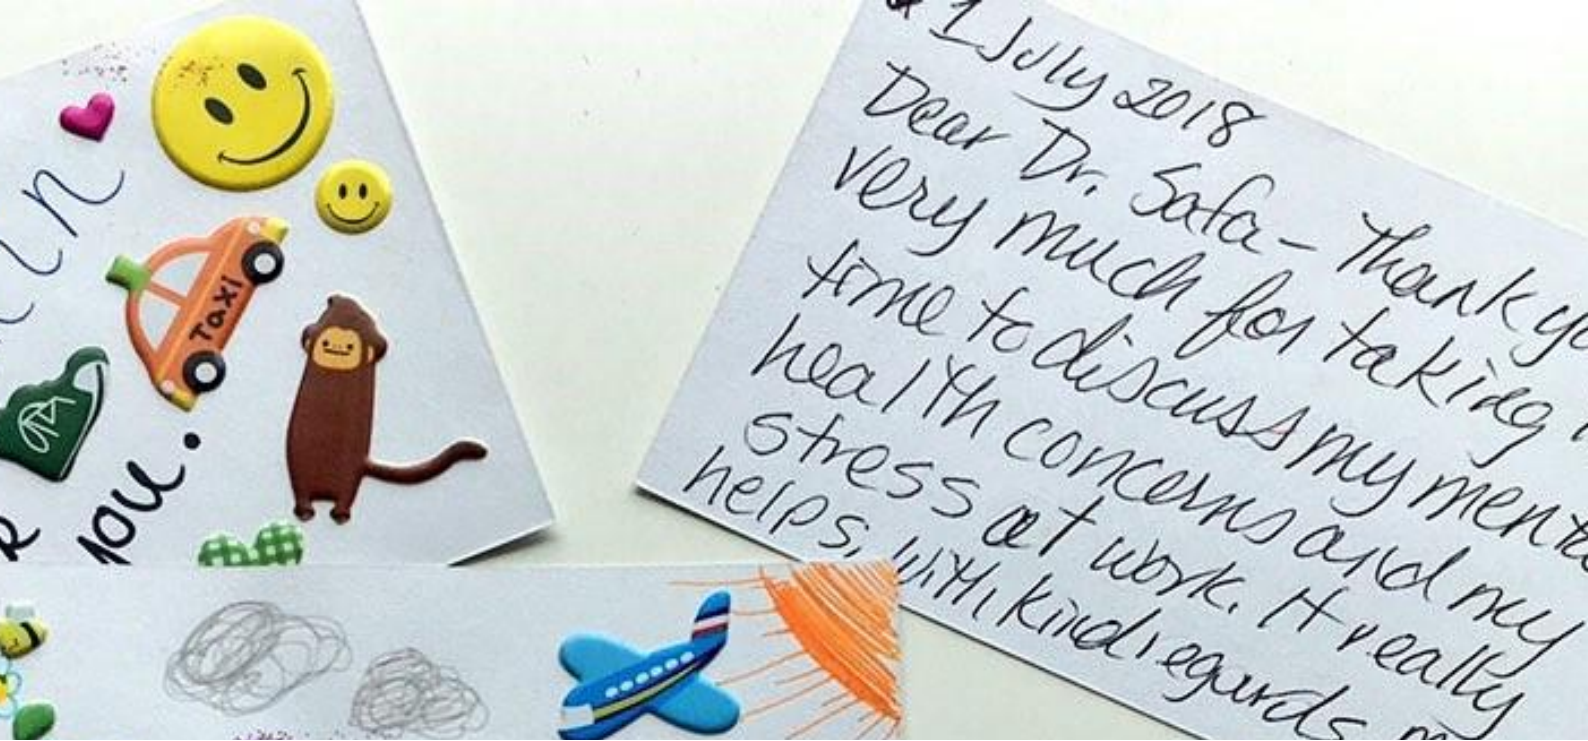 you.
Taxi
1 July 2018
Dear Dr. Safa - Thank
very much for taking
time to discuss my
health concerns and my
stress at work. It really
helps. With kind regards